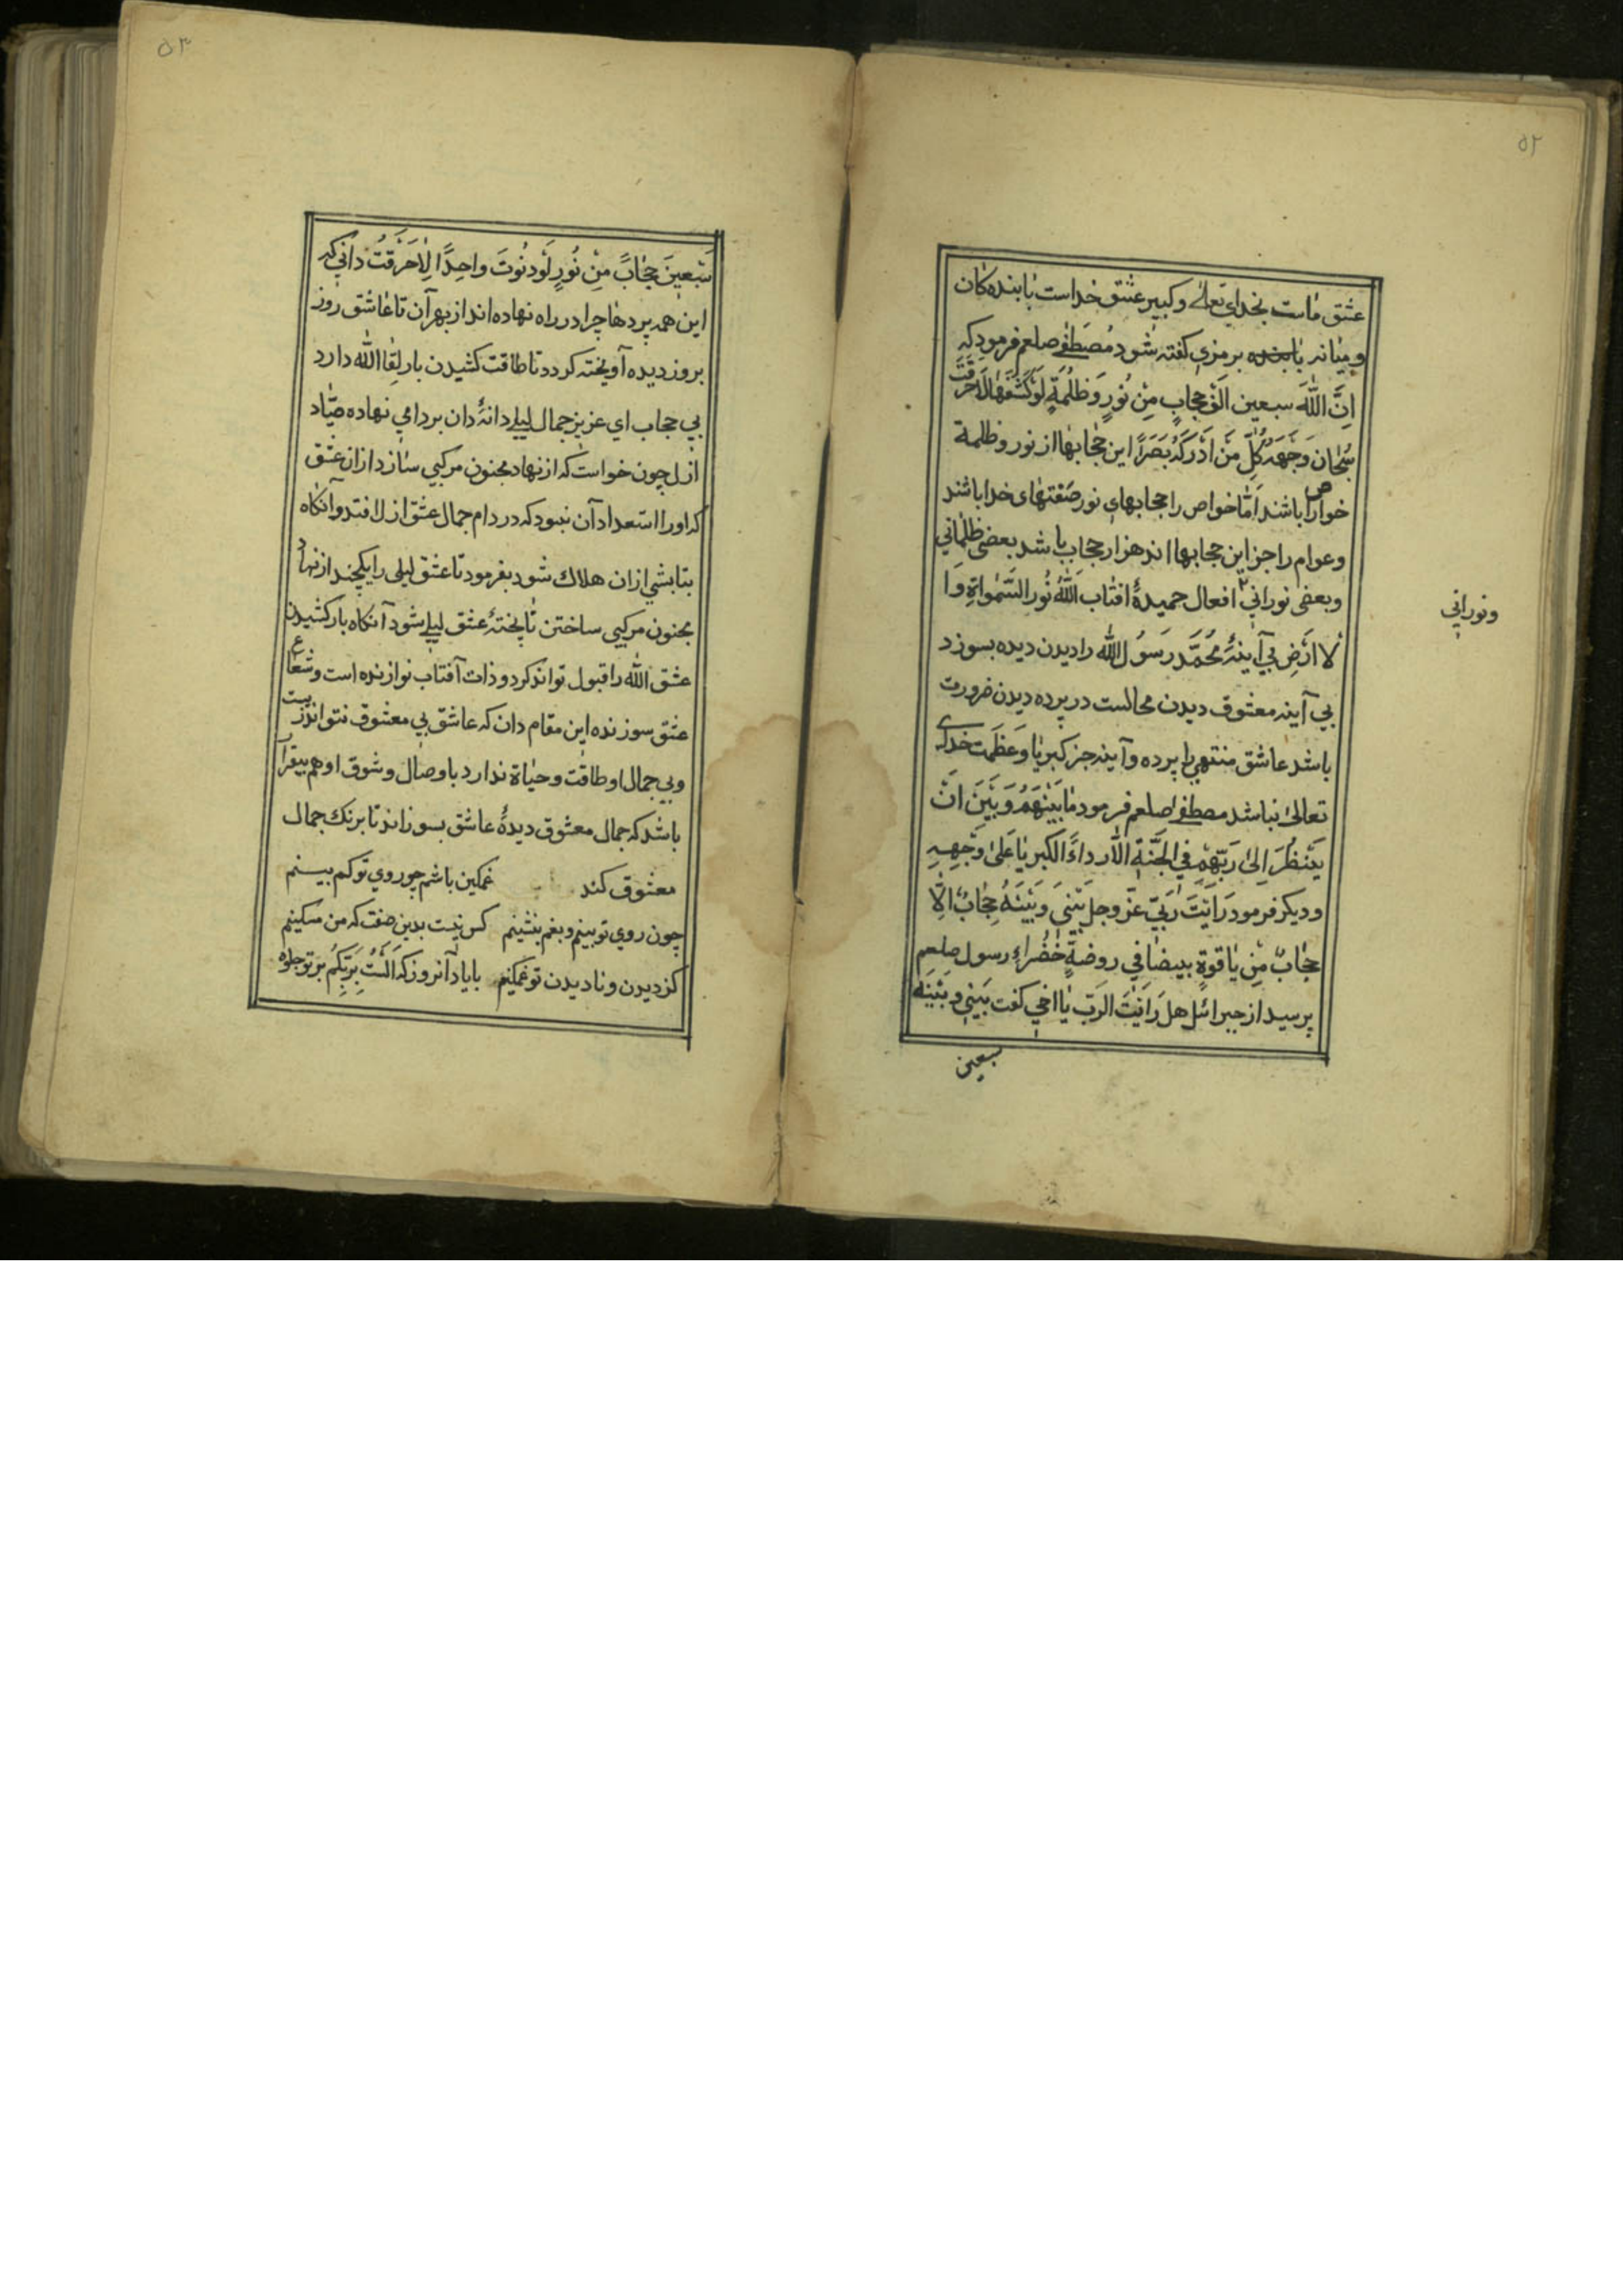 ۵۲
عشق ماست بخداي تعالے وكبير عشق خداست بابنده كان
وميانه برمزي كفته شود مُصطفےٰ صلعم فرمود كه
اِنَّ اللّٰهَ سبعين اَلْفَ حِجابٍ مِنْ نُورٍ وَظُلْمَةٍ لَوْ كَشَفَهَا لَاَحْرَقَتْ
سُبْحَانَ وَجْهَهُ كُلَّ مَنْ اَدْرَكَهُ بَصَرًا اين حجابها از نور وظلمة
خواص را باشند اَمّا خواص را حجابهاي نور صفتهاى خدا باشند
وعوام را جز اين حجابها اند هزار حجاب باشد بعضى ظلماني
وبعضى نوراني افعال حميدۀ افتاب اَللّٰهُ نُورُ السَّمٰواةِ وا
لا ارْضِ بي آينۀ مُحَمَّد رَسُولُ اللّٰه را ديدن ديده بسوزد
بي آينه معشوق ديدن محالست در پرده ديدن ضرورت
باشد عاشق منتهي را پرده وآينه جز كبريا وعَظَمت خداے
تعالىٰ نباشد مصطفےٰ صلعم فرمود مٰا بَيْنَهُمْ وَبَيْنَ اَنْ
يَنْظُرَ اِلىٰ رَبِّهِمْ فِي الْجَنَّةِ اِلّا رداءَ الكبريا عَلىٰ وَجْهِهِ
وديكر فرمود رَاَيْتَ رَبّيَ عزّ وجل بَيْنِيَ وَبَيْنَهُ حِجابٌ اِلّا
حِجابٌ مِنْ ياقوةٍ بيضا في روضةٍ خُضْراء رسول صلعم
پرسيد از جبرائل هل رَاَيْتَ الرَبّ يا اخي كفت بَيْنِي وبَيْنَه
سبعين
ونوراني
۵۳
سَبْعينَ حِجٰابً مِنْ نُورٍ لَوْ دنُوتَ واحِدًا لِاَحْرَقَتْ داني كه
اين همه پردها چرا در راه نهاده اند از بهر آن تا عاشق روز
بروز ديده آويخته كردد تا طاقت كشيدن بار لِقا اللّٰه دارد
بي حجاب اي عزيز جمال ليلے دانۀ دان بردامي نهاده صيّاد
ازل چون خواست كه از نهاد مجنون مركبي سازد از ان عشق
كه اورا استعداد آن نبود كه در دام جمال عشق ازلا فتد وآنكاه
بتابشي ازان هلاك شود بفرمود تا عشق ليلى را يكچند از نهاد
مجنون مركبي ساختن تا پختۀ عشق ليلے شود آنكاه بار كشيدن
عشق اللّٰه را قبول تواند كرد وذات آفتاب نوازنده است وشعاع
عشق سوزنده اين مقام دان كه عاشق بي معشوق نتواند زيست
وبي جمال او طاقت وحياة ندارد باوصال وشوق او هم بيقرار
باشد كه جمال معشوق ديدۀ عاشق بسوزاند تا برنك جمال
معشوق كند غمكين باشم چو روي تو كم بينم
چون روي تو بينم وبغم بنشينم كس نيست بدين صفت كه من مسكينم
كز ديدن وناديدن تو غمكينم بايادآنروز كه اَلَسْتُ بِرَبِّكُمْ بر تو جلوه